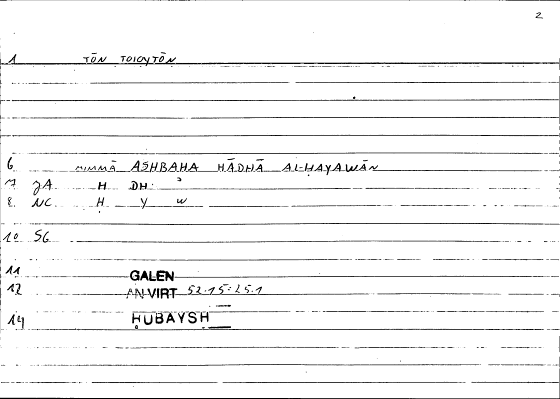 2
1 TŌN TOIOYTŌN
6 MIMMĀ ASHBAHA HĀDHĀ AL-ḤAYAWĀN
7 JA H DH ʾ
8 NC Ḥ Y W
10 SG
11 GALEN
12 AN VIRT 52.15-25.1
14 ḤUBAYSH